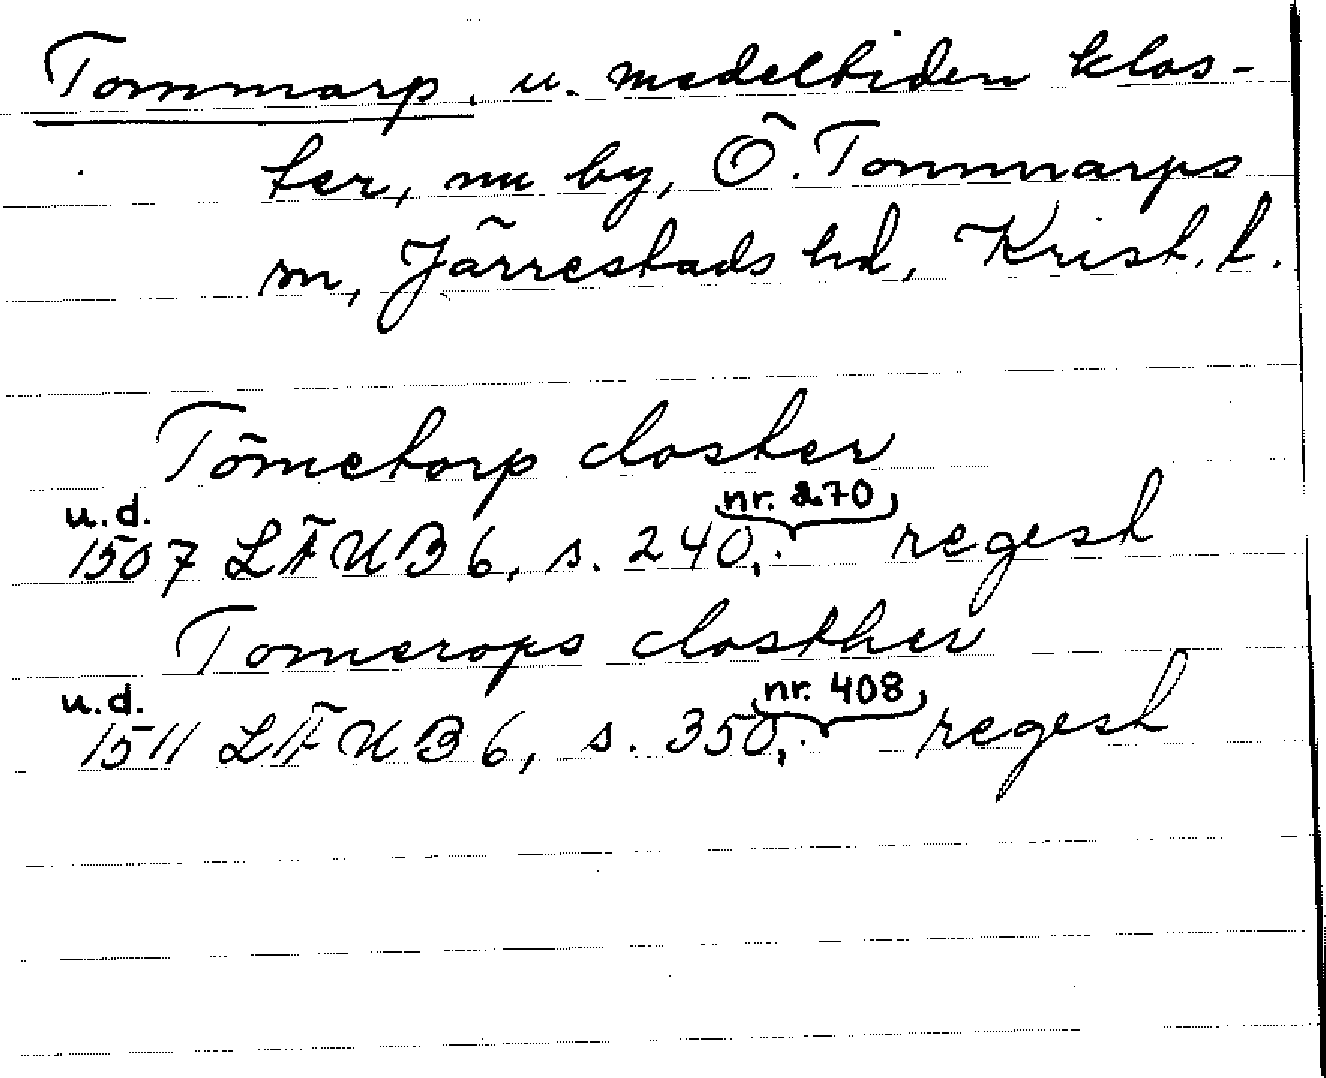 Tommarp, u. medeltiden klos-
ter, nu by, Ö. Tommarps
sn, Järrestads hd, Krist. l.
Tōmetorp closter
u.d. nr. 270
1507 LÄUB 6, s. 240, regest
Tomerops closther
u.d. nr. 408
1511 LÄUB 6, s. 350, regest